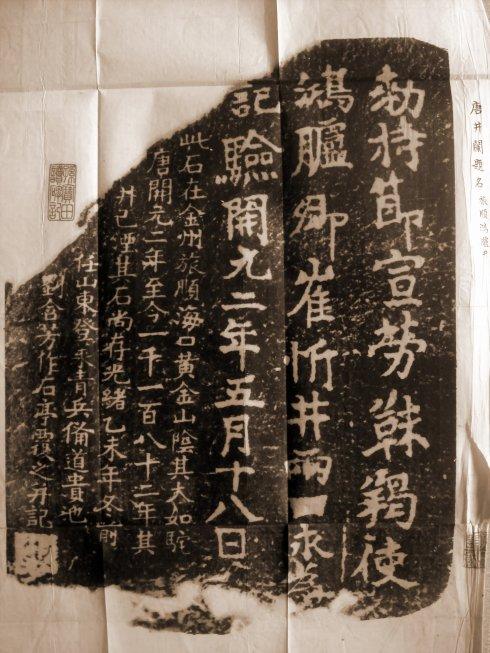 唐井闌題名 旅順鴻臚井
勅持節宣勞靺羯使
鴻臚卿崔忻井兩口永為
記驗開元二年五月十八日
此石在金州旅順海口黃金山陰其大如駝
唐開元二年至今一千一百八十二年其
井已湮其石尚存光緒乙未年冬前
任山東登萊青兵備道貴池
劉含芳作石亭覆之并記